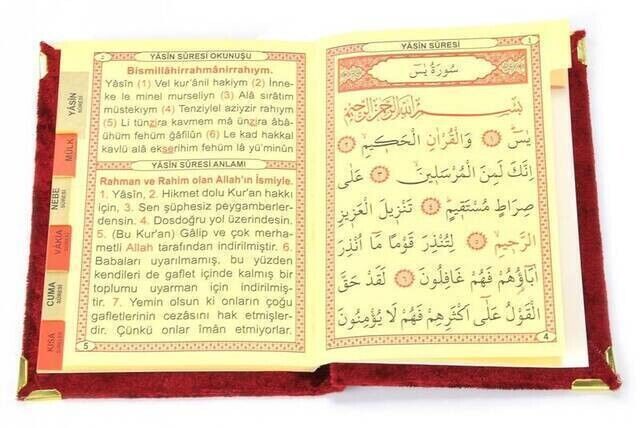 YÂSİN SÛRESİ OKUNUŞU
Bismillâhirrahmânirrahıym.
Yâsîn (1) Vel kur'ânil hakiym (2) İnne-
ke le minel murseliyn (3) Alâ sırâtim
müstekıym (4) Tenziylel aziyzir rahıym
(5) Li tünzira kavmem mâ ünzira âbâ-
ühüm fehüm ğâfilûn (6) Le kad hakkal
kavlü alâ ekserihim fehüm lâ yü'minûn
YÂSÎN SÛRESİ ANLAMI
Rahman ve Rahim olan Allah'ın İsmiyle.
1. Yâsîn, 2. Hikmet dolu Kur'an hakkı
için, 3. Sen şüphesiz peygamberler-
densin. 4. Dosdoğru yol üzerindesin.
5. (Bu Kur'an) Gâlip ve çok merha-
metli Allah tarafından indirilmiştir. 6.
Babaları uyarılmamış, bu yüzden
kendileri de gaflet içinde kalmış bir
toplumu uyarman için indirilmiş-
tir. 7. Yemin olsun ki onların çoğu
gafletlerinin cezasını hak etmişler-
dir. Çünkü onlar îmân etmiyorlar.
5
YÂSİN SÛRESİ
MÜLK
NEBE SÛRESİ
VÂKIA
CUMA SÛRESİ
KISA
YÂSÎN SÛRESİ
سُورَةُ يٰسٓ
بِسْمِ اللّٰهِ الرَّحْمٰنِ الرَّحِيمِ
يٰسٓ ﴿١﴾ وَالْقُرْاٰنِ الْحَكِيمِ ﴿٢﴾
اِنَّكَ لَمِنَ الْمُرْسَلِينَ ﴿٣﴾ عَلٰى
صِرَاطٍ مُسْتَقِيمٍ ﴿٤﴾ تَنْزِيلَ الْعَزِيزِ
الرَّحِيمِ ﴿٥﴾ لِتُنْذِرَ قَوْمًا مَٓا اُنْذِرَ
اٰبَٓاؤُهُمْ فَهُمْ غَافِلُونَ ﴿٦﴾ لَقَدْ حَقَّ
الْقَوْلُ عَلٰٓى اَكْثَرِهِمْ فَهُمْ لَا يُؤْمِنُونَ
4